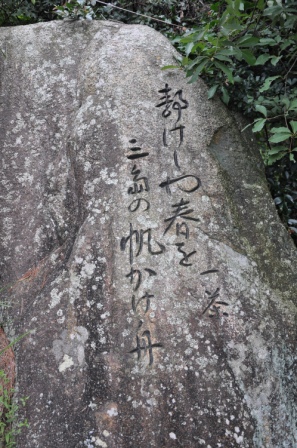 静けしや春を
三島の帆かけ舟
一茶